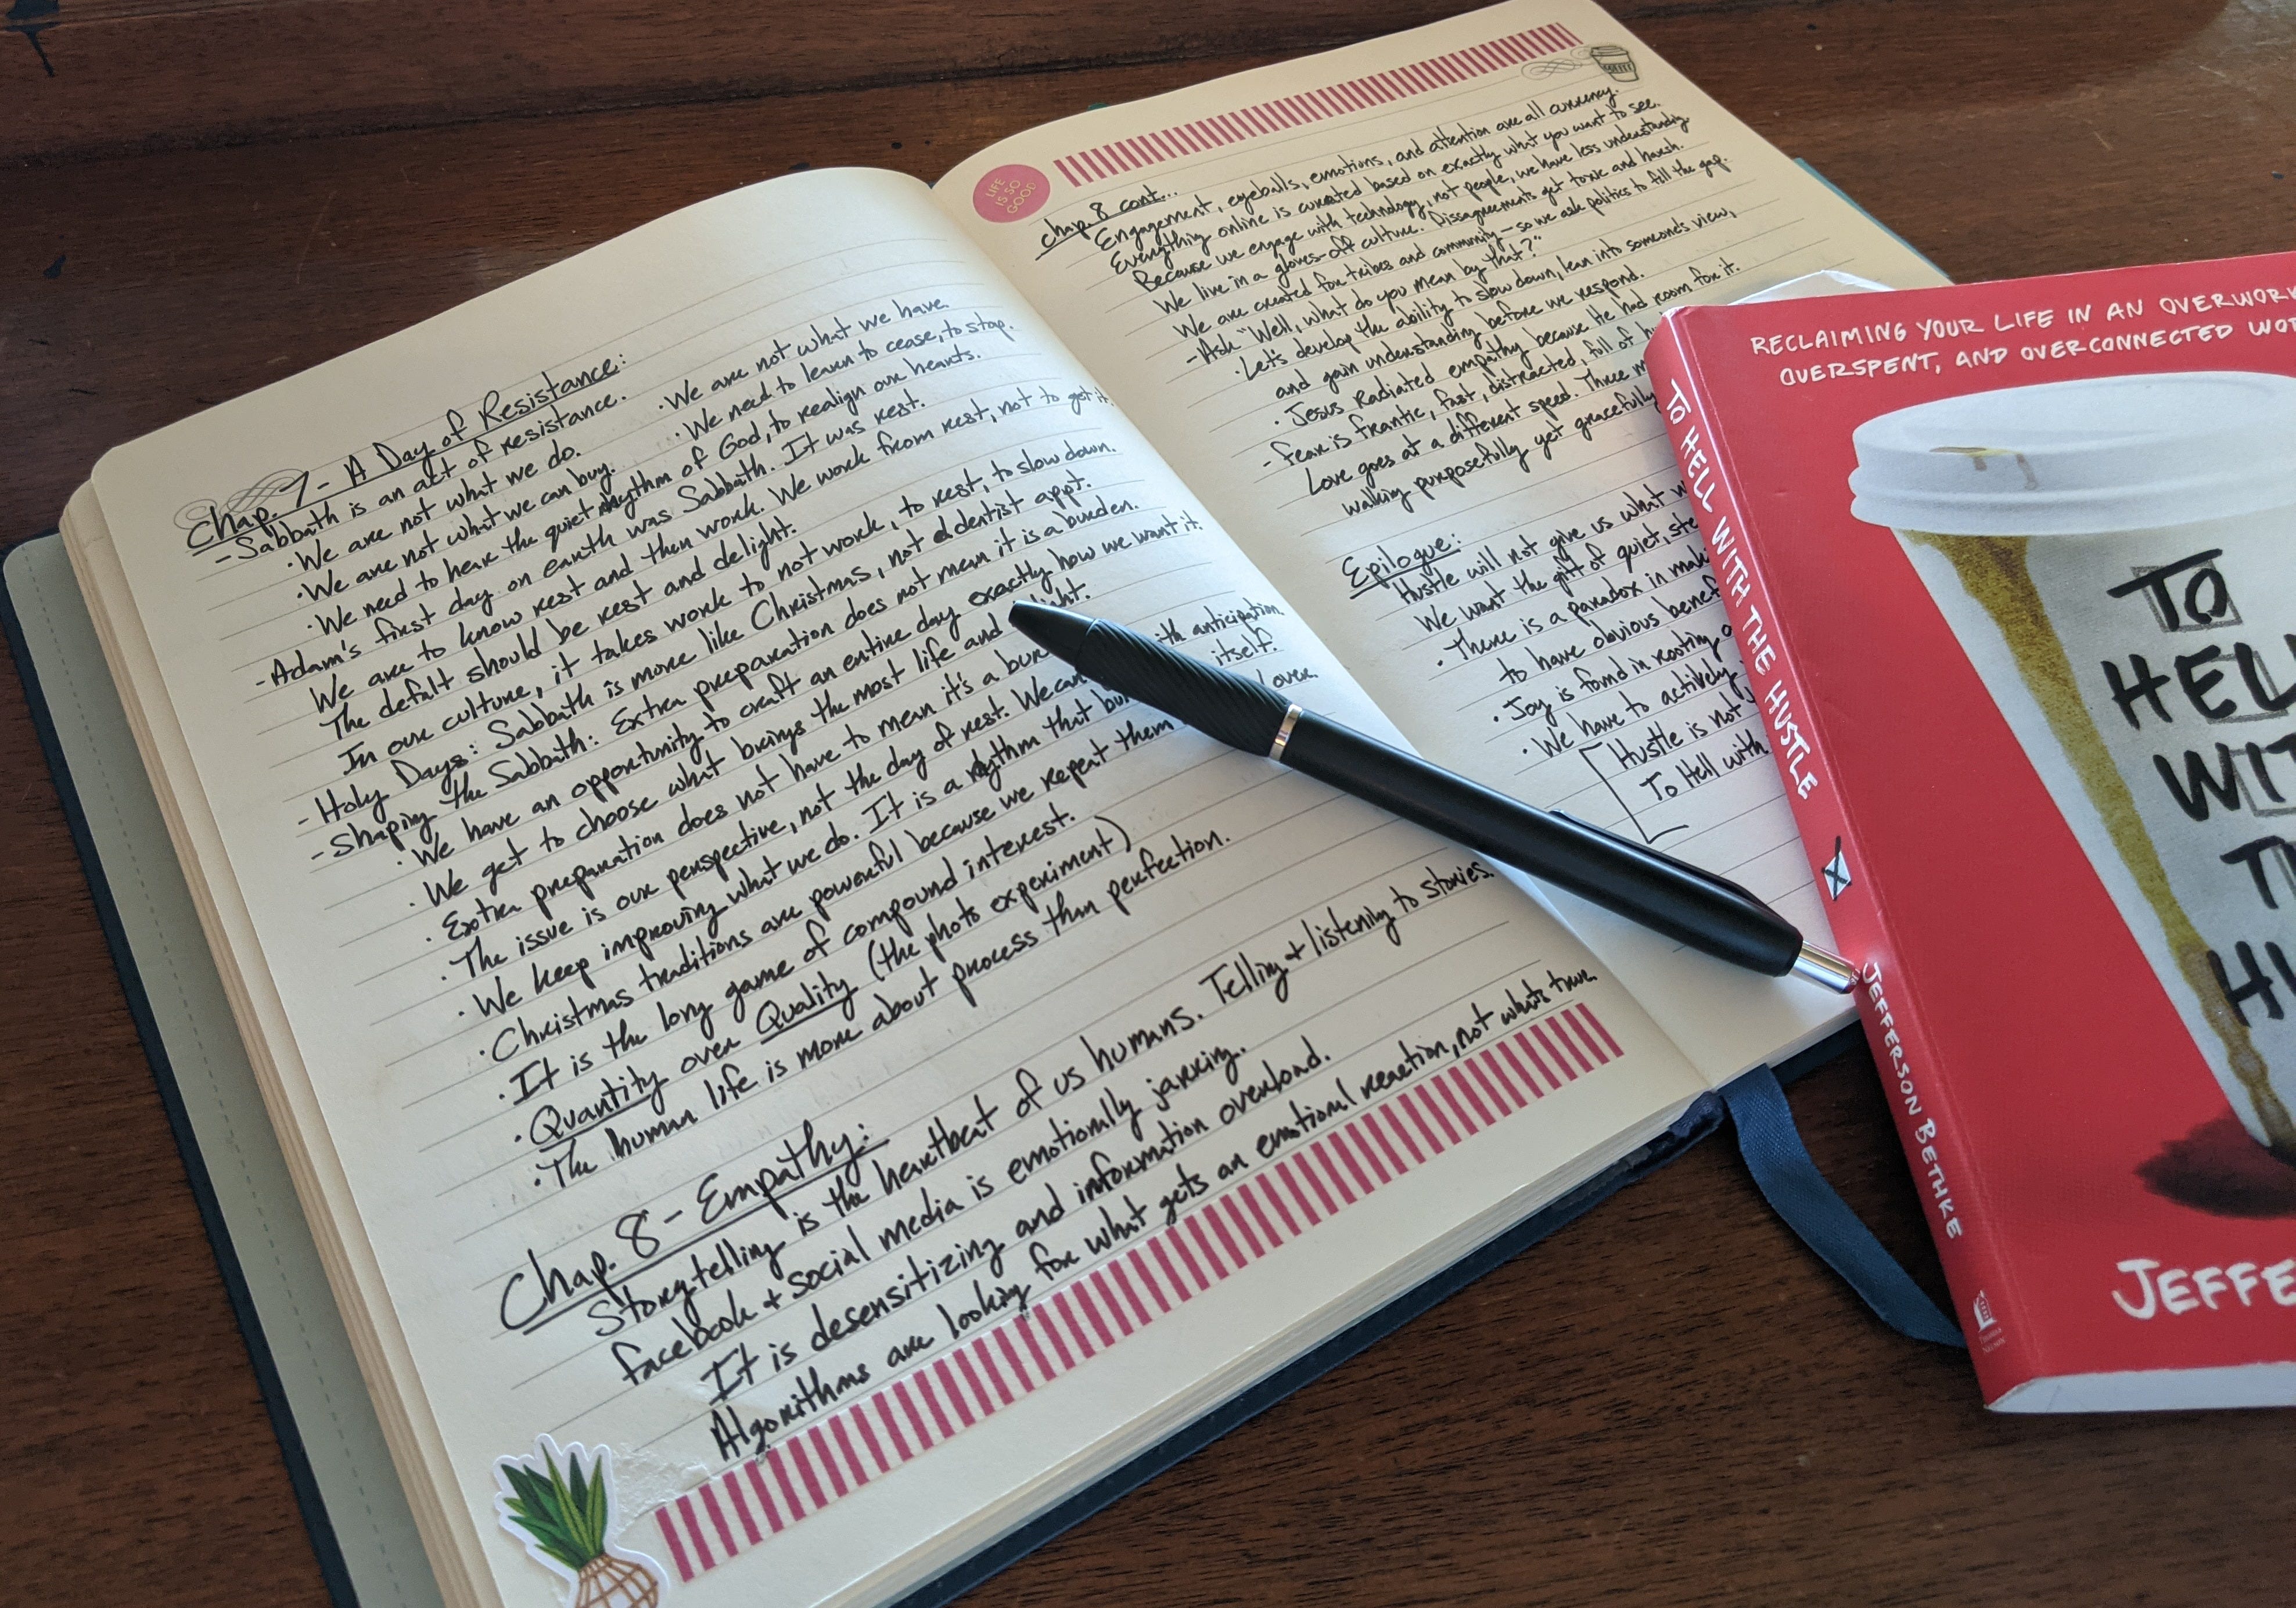 Chap. 7 - A Day of Resistance:
- Sabbath is an act of resistance.
· We are not what we do. · We are not what we have.
· We are not what we can buy. · We need to learn to cease, to stop.
· We need to hear the quiet rhythm of God, to realign our hearts.
- Adam's first day on earth was Sabbath. It was rest.
We are to know rest and then work. We work from rest, not to get it.
The defalt should be rest and delight.
In our culture, it takes work to not work, to rest, to slow down.
- Holy Days: Sabbath is more like Christmas, not dentist appt.
- Shaping the Sabbath: Extra preparation does not mean it is a burden.
· We have an opportunity to craft an entire day exactly how we want it.
· We get to choose what brings the most life and
· Extra preparation does not have to mean it's a with anticipation.
· The issue is our perspective, not the day of rest. We can itself.
· We keep improving what we do. It is a rhythm that over.
· Christmas traditions are powerful because we repeat them
· It is the long game of compound interest.
· Quantity over Quality (the photo experiment)
· The human life is more about process than perfection.
Chap. 8 - Empathy:
Storytelling is the heartbeat of us humans. Telling + listening to stories.
Facebook + social media is emotionally jarring.
It is desensitizing and information overload.
Algorithms are looking for what gets an emotional reaction, not what's true.
LIFE
IS SO
GOOD
chap. 8 cont...
Engagement, eyeballs, emotions, and attention are all currency.
Everything online is curated based on exactly what you want to see.
Because we engage with technology, not people, we have less understanding
We live in a gloves-off culture. Dissagreements get toxic and harsh.
We are created for tribes and community - so we ask politics to fill the gap.
- Ask "Well, what do you mean by that?"
· Let's develop the ability to slow down, lean into someone's view,
and gain understanding before we respond.
· Jesus radiated empathy because He had room for it.
- Fear is frantic, fast, distracted, full of
Love goes at a different speed. Three
walking purposefully yet gracefully
Epilogue:
Hustle will not give us what
We want the gift of quiet,
· There is a paradox in
to have obvious
· Joy is found in rooting
· We have to actively
Hustle is not
To Hell with
RECLAIMING YOUR LIFE IN AN
OVERSPENT, AND OVERCONNECTED
TO HELL WITH THE HUSTLE
JEFFERSON BETHKE
TO